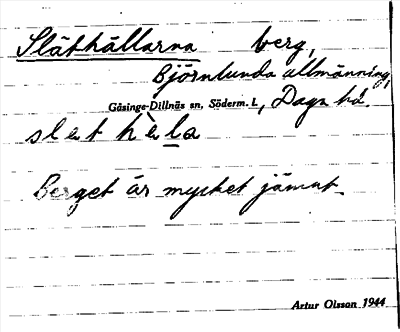 Släthällarna berg,
Björnlunda allmänning,
Gåsinge-Dillnäs sn, Söderm. L, Daga hd.
slet hèla
Berget är mycket jämnt.
Artur Olsson 1944